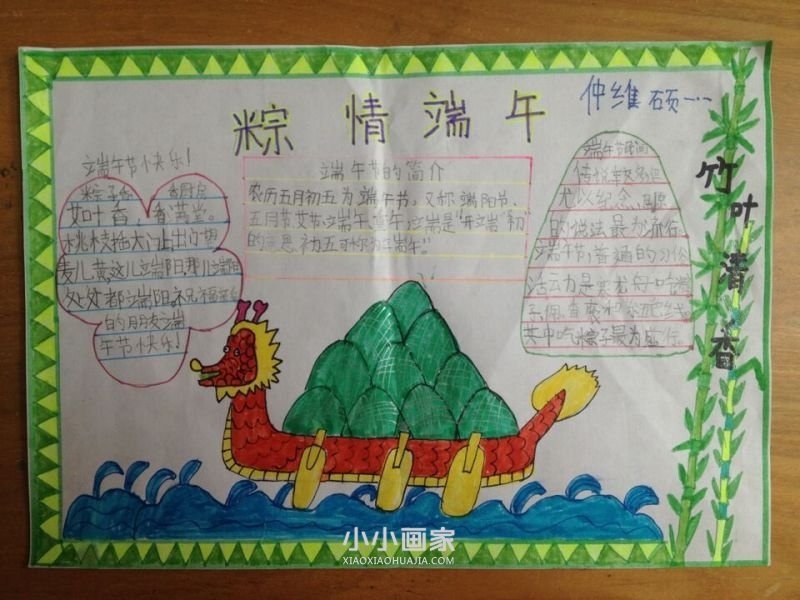 粽 情 端 午
仲维硕
端午节快乐!
粽子香, 香厨房
艾叶香, 香满堂。
桃枝插大门上出门望
麦儿黄,这儿端阳那儿端阳
处处都端阳。祝福
的朋友端
午节快乐!
端午节的简介
农历五月初五为端午节,又称端阳节、
五月节、艾节、端午、
的意思,初五可称为端午。
端午节时间
尤以纪念屈原
的说法最为流行。
端午节普遍的习俗
活动力是赛龙舟
其中吃粽子最为盛行。
竹叶清香
小小画家
XIAOXIAOHUAJIA.COM